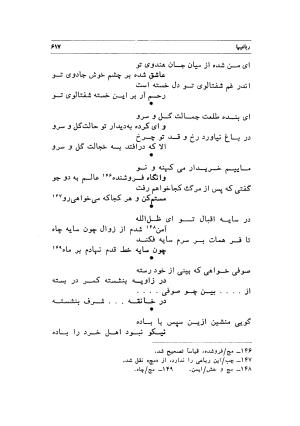 رباعیها
۶۱۷
ای من شده از میان جان هندوی تو
عاشق شده بر چشم خوش جادوی تو
اندر غم شفتالوی تو دل خسته است
رحم آر بر این خسته شفتالوی تو
ای بنده طلعت جمالت گل و سرو
و ای کرده به‌دیدار تو حالت گل و سرو
در باغ نیاورد رخ و قد تو چرخ
الا که درافتد به خجالت گل و سرو
ماییم خریدار می کهنه و نو
وانگاه فروشنده۱۴۶ عالم به دو جو
گفتی که پس از مرگ کجا خواهم رفت
مستم‌کن و هر کجا که می‌خواهی‌رو۱۴۷
در سایه اقبال تو ای ظل‌الله
آمن۱۴۸ شدم از زوال چون سایه چاه
تا فر همات بر سرم سایه فکند
چون سایه خط قدم نهادم بر ماه۱۴۹
صوفی خواهی که بینی از خود رسته
در زاویه بنشسته کمر در بسته
از . . . . بین چو صوفی . . . .
در خانقه . . . شرف بنشسته
گویی منشین ازین سپس با باده
نیکو نبود اهل خرد را باده
۱۴۶ـ مج/فروشده، قیاساً تصحیح شد.
۱۴۷ـ چب/این رباعی را ندارد، از «مج» نقل شد.
۱۴۸ـ مج و خش/ایمن. ۱۴۹ـ مج/چاه.